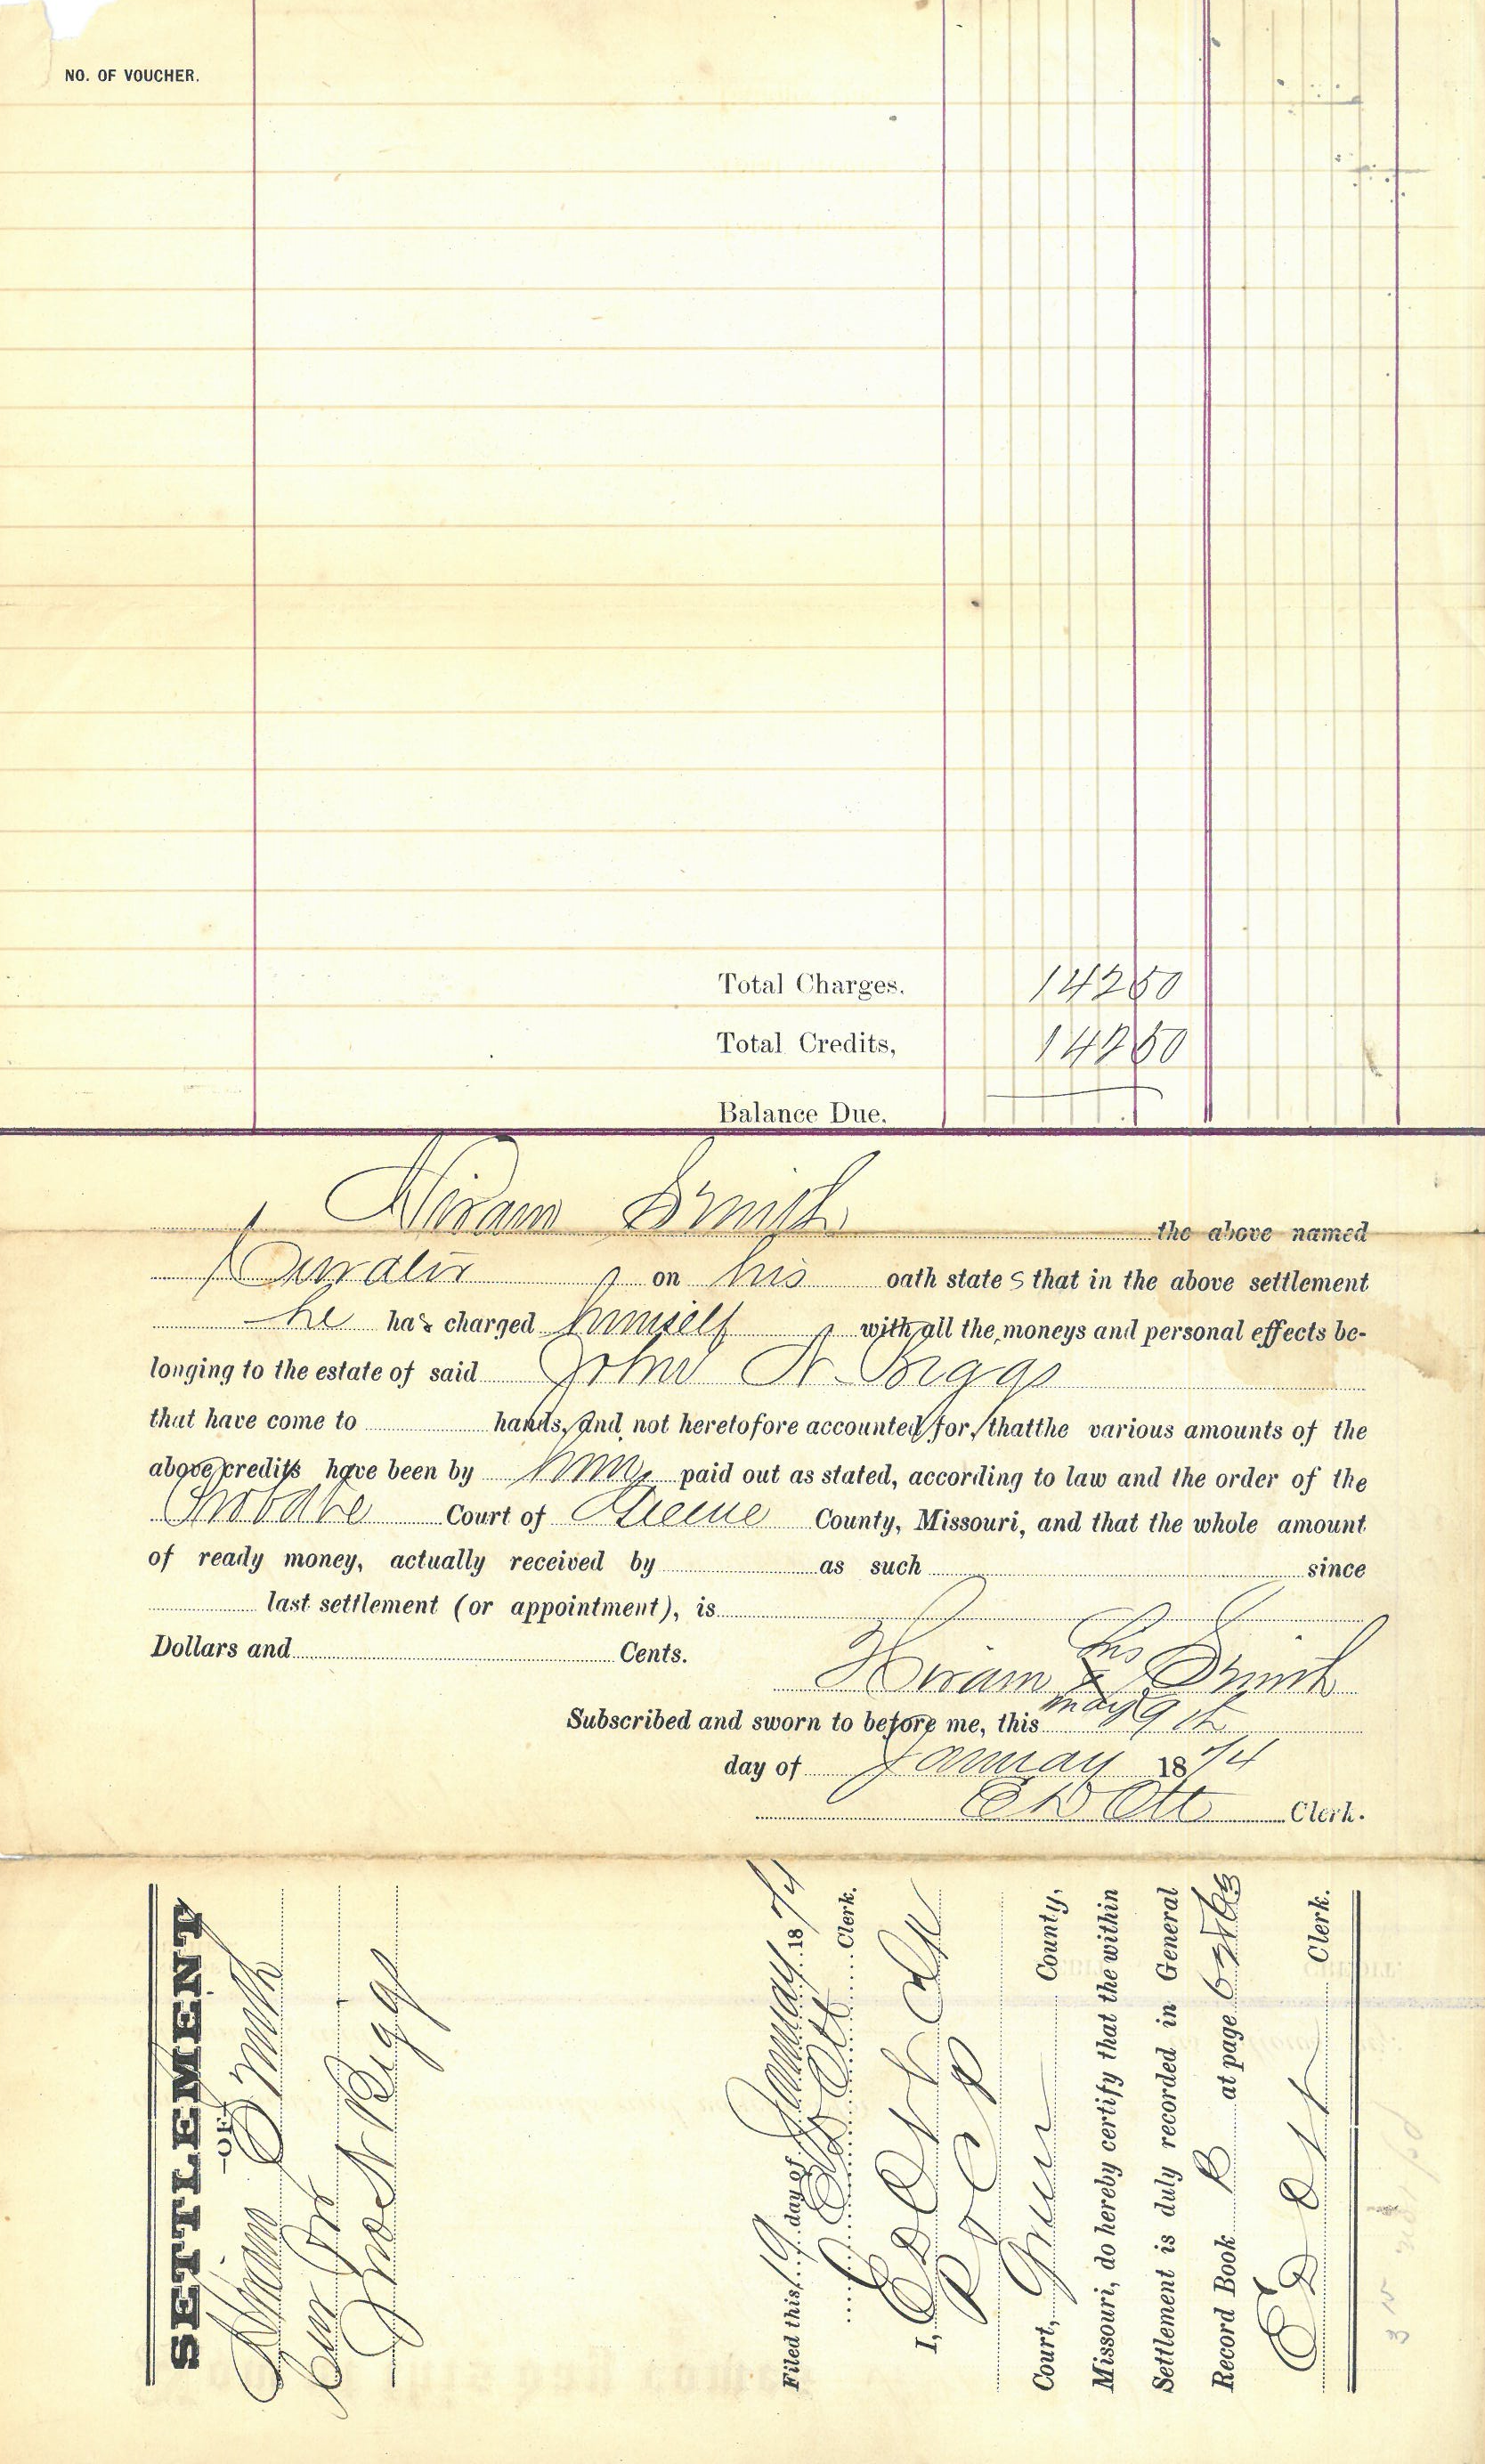 NO. OF VOUCHER.
Total Charges, 142 50
Total Credits, 142 50
Balance Due,
Hiram Smith the above named
Curator on his oath states that in the above settlement
he has charged himself with all the moneys and personal effects be-
longing to the estate of said John N Biggs
that have come to hands, and not heretofore accounted for, that the various amounts of the
above credits have been by him paid out as stated, according to law and the order of the
Probate Court of Greene County, Missouri, and that the whole amount
of ready money, actually received by as such since
last settlement (or appointment), is
Dollars and Cents.
his
Hiram X Smith
mark
Subscribed and sworn to before me, this 19th
day of January 1874
E D Ott Clerk.
SETTLEMENT
—OF—
Hiram Smith
Cur Of
Jno N Biggs
Filed this 19 day of January 1874
E D Ott Clerk.
I, E D Ott
Court, Greene County,
Missouri, do hereby certify that the within
Settlement is duly recorded in General
Record Book B at page
E D Ott Clerk.